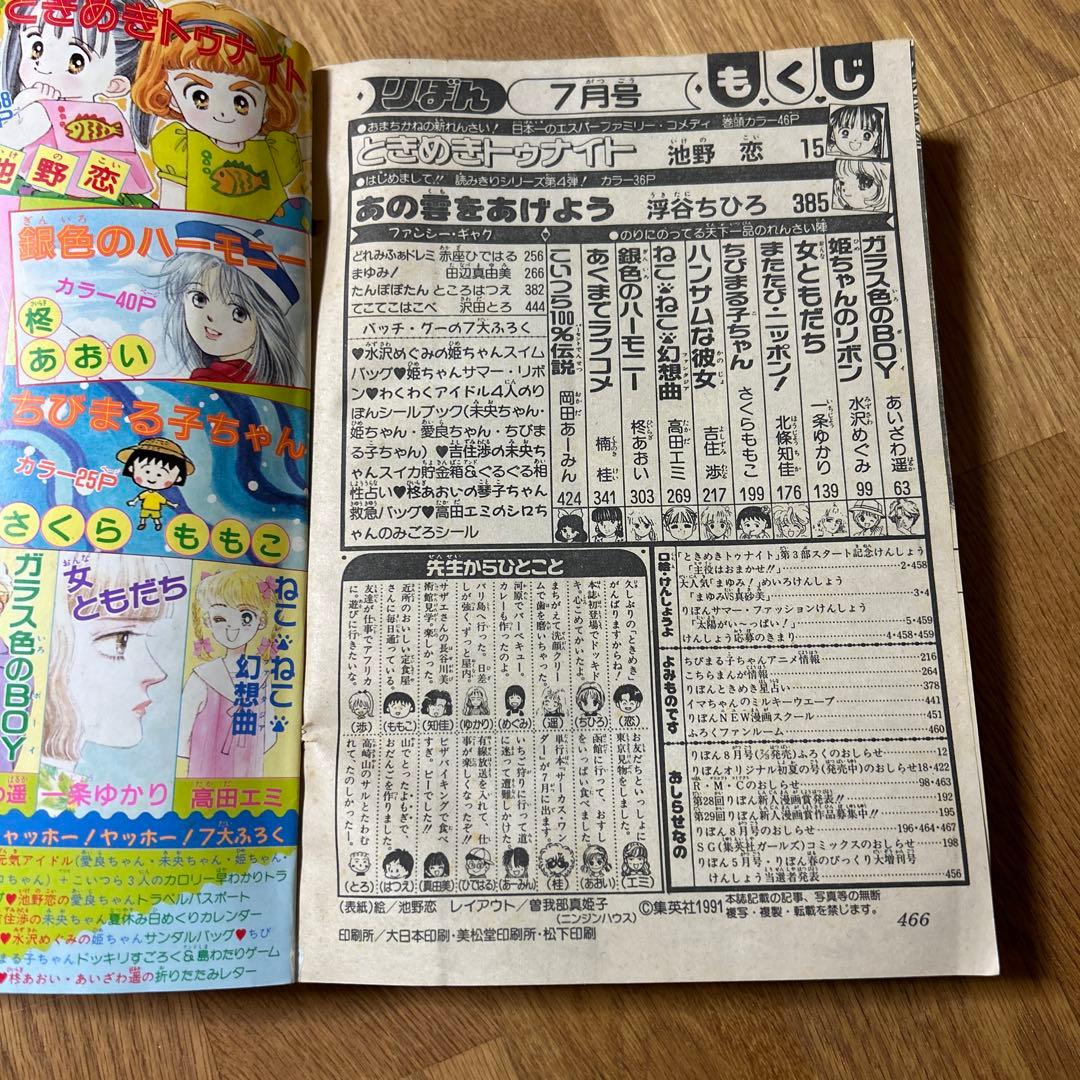 ときめきトゥナイト
池野恋
銀色のハーモニー
カラー40P
柊
あおい
ちびまる子ちゃん
カラー25P
さくらももこ
ガラス色のBOY
女ともだち
ねこ・ねこ幻想曲
一条ゆかり
高田エミ
ヤッホー!ヤッホー!7大ふろく
元気アイドル(愛良ちゃん・未央ちゃん・姫ちゃん・
ちゃん)+こいつら3人のカロリー早わかりトラ
♥池野恋の愛良ちゃんトラベルパスポート
住渉の未央ちゃん夏休み日めくりカレンダー
♥水沢めぐみの姫ちゃんサンダルバッグ♥ちび
まる子ちゃんドッキリすごろく&島わたりゲーム
♥柊あおい・あいざわ遥の折りたたみレター
りぼん 7月号 もくじ
●おまちかねの新れんさい! 日本一のエスパーファミリー・コメディ 巻頭カラー46P
ときめきトゥナイト 池野 恋 15
●はじめまして!! 読みきりシリーズ第4弾! カラー36P
あの雲をあげよう 浮谷ちひろ 385
ファンシー・ギャグ
どれみふぁドレミ 赤座ひではる 256
まゆみ! 田辺真由美 266
たんぽぽたん ところはつえ 382
てこてこはこべ 沢田とろ 444
●のりにのってる天下一品のれんさい陣
ガラス色のBOY あいざわ遥 63
姫ちゃんのリボン 水沢めぐみ 99
女ともだち 一条ゆかり 139
またたび・ニッポン! 北條知佳 176
ちびまる子ちゃん さくらももこ 199
ハンサムな彼女 吉住 渉 217
ねこ・ねこ幻想曲 高田エミ 269
銀色のハーモニー 柊あおい 303
あくまでラブコメ 楠 桂 341
こいつら100%伝説 岡田あーみん 424
バッチ・グーの7大ふろく
♥水沢めぐみの姫ちゃんスイム
バッグ♥姫ちゃんサマー・リボ
ン♥わくわくアイドル4人のり
ぼんシールブック(未央ちゃん・
姫ちゃん・愛良ちゃん・ちびま
る子ちゃん)♥吉住渉の未央ち
ゃんスイカ貯金箱&ぐるぐる相
性占い♥柊あおいの琴子ちゃん
救急バッグ♥高田エミのシロち
ゃんのみごろシール
先生からひとこと
久しぶりの「ときめき」
がんばりますからね!
(恋)
本誌初登場でドッキド
キ。心こめてかいたよ。
(ちひろ)
まちがえて洗顔クリー
ムで歯を磨いちゃった。
(遥)
河原でバーベキュー。
カレーも作ったのよ。
(めぐみ)
バリ島へ行った。日差
しが強く、ずっと屋内。
(ゆかり)
サザエさんの長谷川美
術館見学。楽しかった。
(知佳)
近所のおいしい定食屋
さんに毎日通っている。
(ももこ)
友達が仕事でアフリカ
に。遊びに行きたいな。
(渉)
お友だちといっしょに
東京見物をしました。
(エミ)
函館に行って、おすし
をいっぱい食べました。
(あおい)
単行本「サーカス・ワン
ダー」が7月に出ます。
(桂)
いちご狩りに行って道
に迷って遭難しかけた。
(あーみん)
有線放送を入れて、仕
事が楽しくなったぞ!!
(ひではる)
ピザバイキングで食べ
すぎ。ピーでした…。
(真由美)
山でとったよもぎで、
おだんごを作りました。
(はつえ)
高崎山のサルとたわむ
れて、たのしかったー!
(とろ)
口絵・けんしょうよ
「ときめきトゥナイト」第3部スタート記念けんしょう
「主役はおまかせ!!」 2・458
大人気「まゆみ!」めいろけんしょう
「まゆみVS真砂美」 3・4
りぼんサマー・ファッションけんしょう
「太陽がい〜っぱい!」 5・459
けんしょう応募のきまり 4・458・459
よみものです
ちびまる子ちゃんアニメ情報 216
こちらまんが情報 264
りぼんときめき星占い 378
イマちゃんのミルキーウエーブ 441
りぼんNEW漫画スクール 451
ふろくファンルーム 460
おしらせなの
りぼん8月号(7/3発売)ふろくのおしらせ 12
りぼんオリジナル初夏の号(発売中)のおしらせ 18・422
R・M・Cのおしらせ 98・463
第28回りぼん新人漫画賞発表!! 192
第29回りぼん新人漫画賞作品募集中!! 195
りぼん8月号のおしらせ 196・464・467
SG(集英社ガールズ)コミックスのおしらせ 198
りぼん5月号・りぼん春のびっくり大増刊号
けんしょう当選者発表 456
(表紙)絵/池野恋 レイアウト/曽我部真姫子
(ニンジンハウス)
©集英社1991
本誌記載の記事、写真等の無断
複写・複製・転載を禁じます。
印刷所/大日本印刷・美松堂印刷所・松下印刷
466